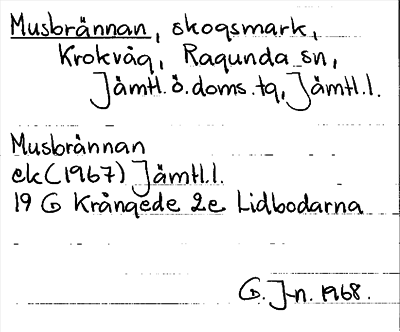 Musbrännan, skogsmark,
Krokvåg, Ragunda sn,
Jämtl. ö. doms. tg, Jämtl. l.
Musbrännan
ek (1967) Jämtl. l.
19 G Krångede 2e Lidbodarna
G. J-n. 1968.